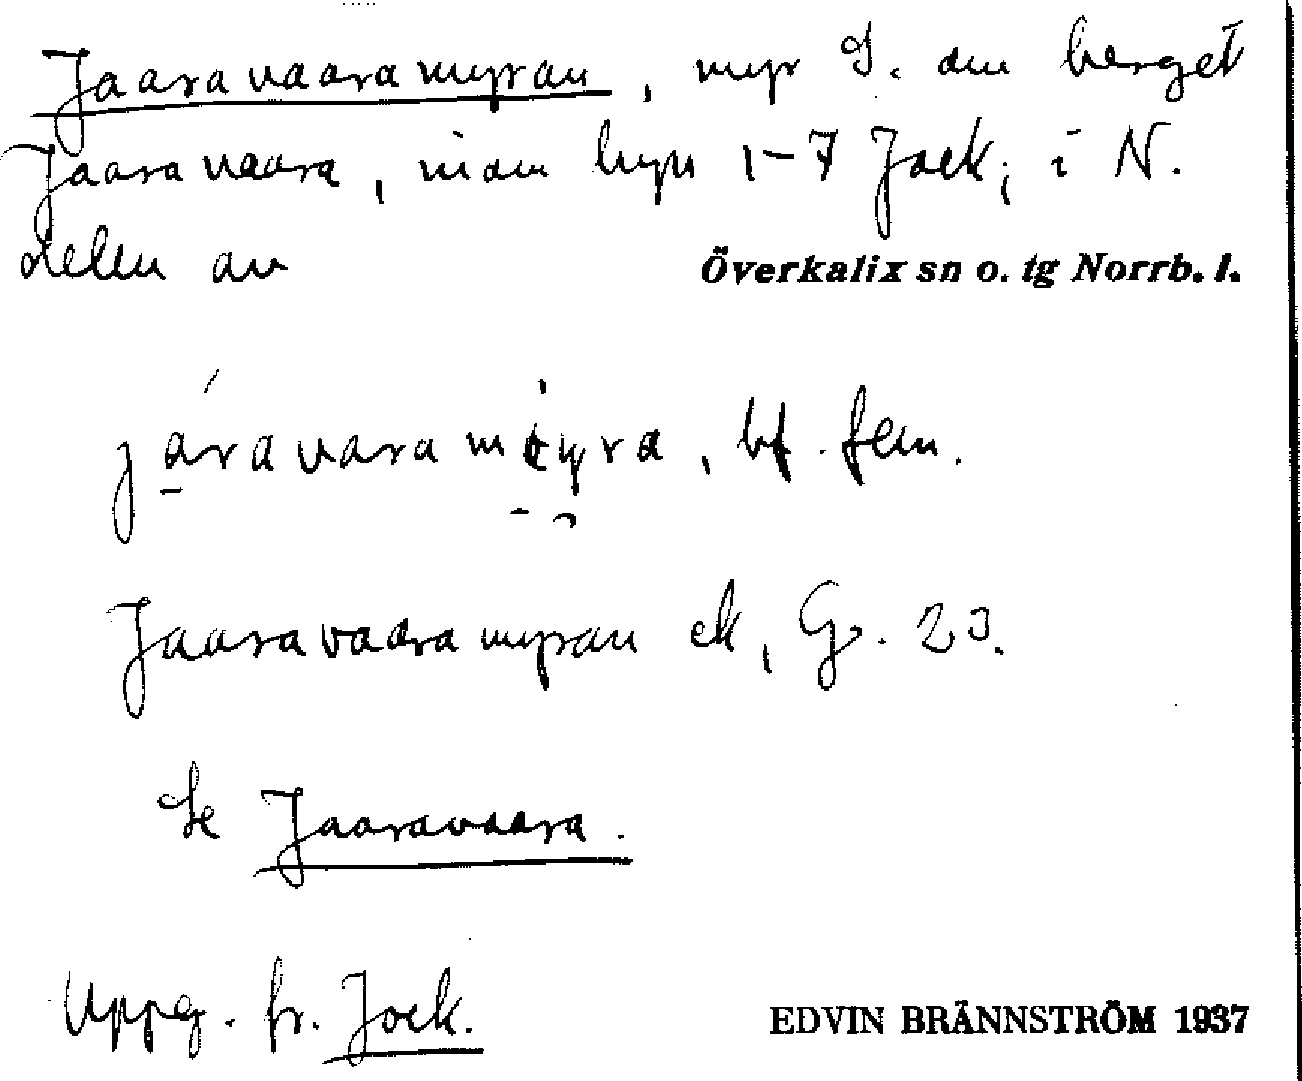 Jaaravaaramyran, myr S. om berget
Jaaravaara, inom hyn 1-7 Jock; i N.
delen av Överkalix sn o. tg Norrb. l.
järavara myra, bf. fem.
Jaaravaaramyran ek, G. 23.
Se Jaaravaara.
Uppg. fr. Jock. EDVIN BRÄNNSTRÖM 1937